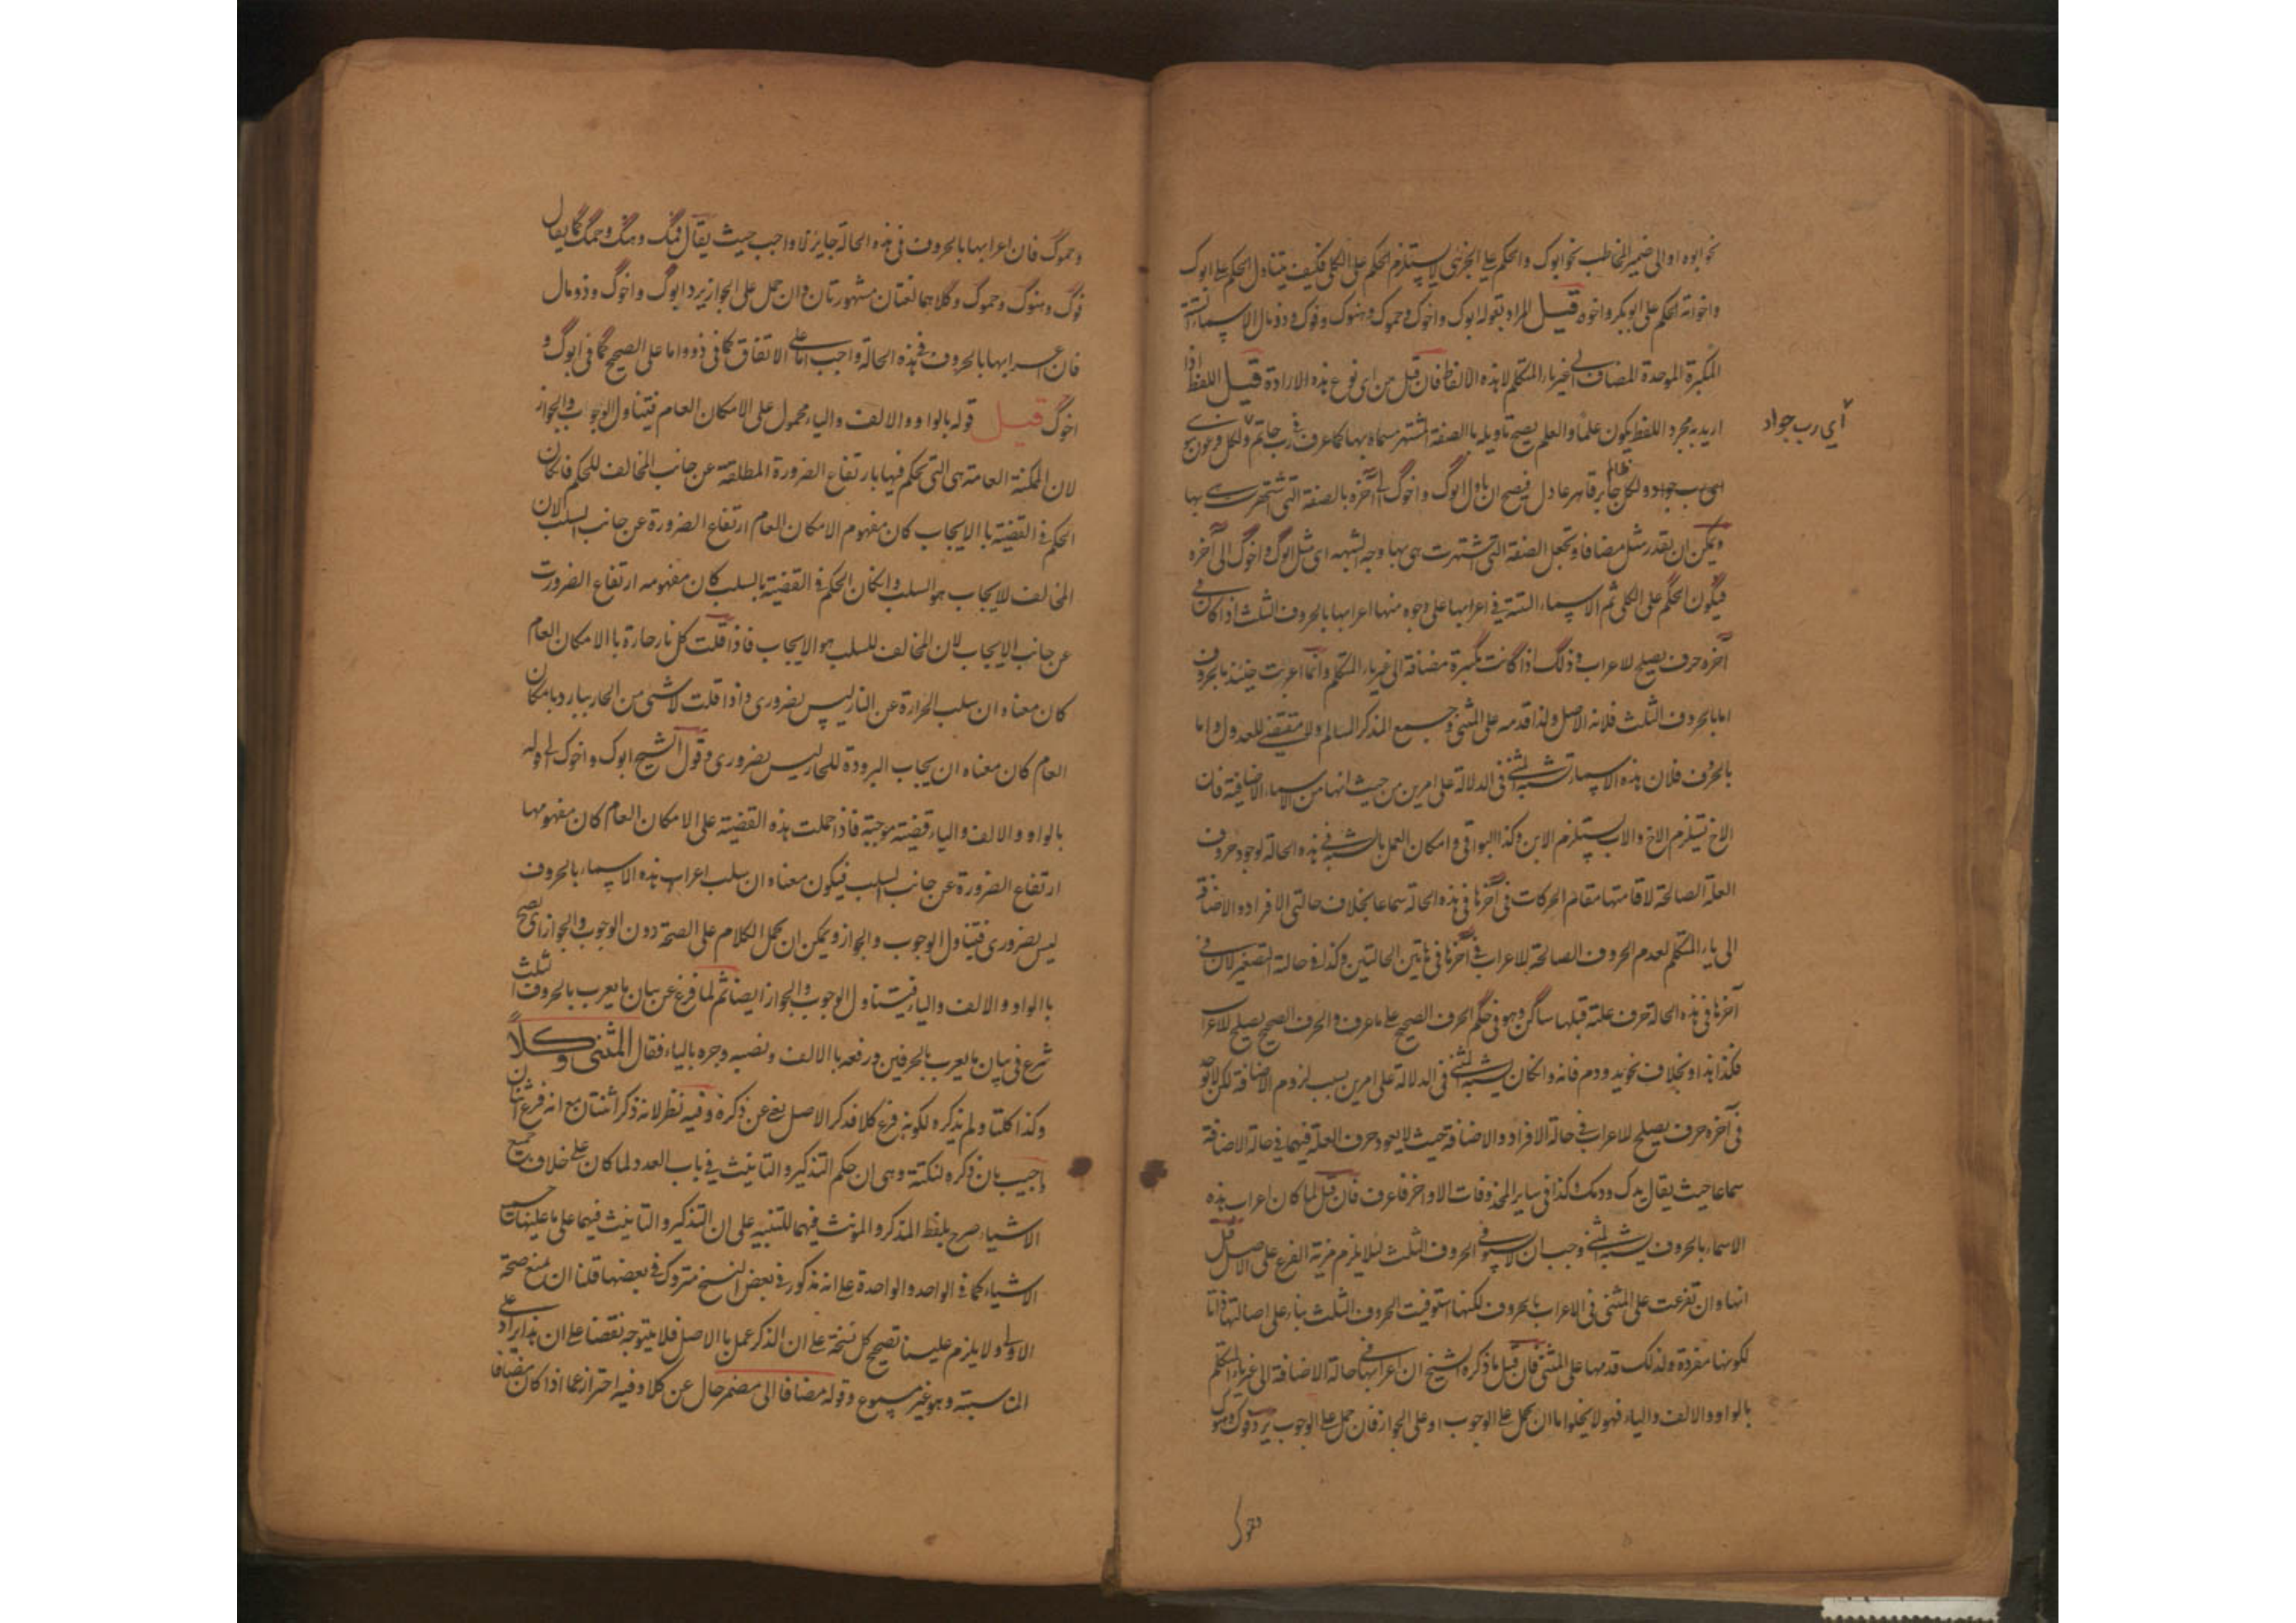 نحو ابوه او الى ضمير المخاطب نحو ابوك والحكم على الجزئى لا يستلزم الحكم على الكلى فكيف يتناول الحكم على ابوك
واخواته الحكم على ابو بكر واخوه قيل المراد بقوله ابوك واخوك وحموك وهنوك وفوك وذو مال الاسماء الستة
المكبرة الموحدة المضاف الى غير ياء المتكلم لا هذه الالفاظ فان قيل من اى نوع هذه الارادة قيل اللفظ اذا
اريد به مجرد اللفظ يكون علما والعلم يصح تاويله بالصفة المشتهر مسماه بها كما عرف فى رب حاتم ولكل فرعون موسى
اى رب جواد
اى رب جواد ولكل جابر ظالم قاهر عادل فيصح ان ياول ابوك واخوك الى آخره بالصفة التى اشتهرت هى بها
ويمكن ان يقدر مثل مضافا ويجعل الصفة التى اشتهرت هى بها وجه الشبهه اى مثل ابوك واخوك الى آخره
فيكون الحكم على الكلى ثم الاسماء الستة فى اعرابها على وجوه منها اعرابها بالحروف الثلث اذا كان فى
آخره حرف يصلح للاعراب وذلك اذا كانت مكبرة مضافة الى غير ياء المتكلم وانما اعربت حينئذ بالحروف
اما بالحروف الثلث فلانه الاصل ولذا قدمه على المثنى وجمع المذكر السالم ولا مقتضى للعدول واما
بالحروف فلان هذه الاسماء تشبه المثنى فى الدلالة على امرين من حيث انها من الاسماء الاضافية فان
الاخ تستلزم الاخ والاب يستلزم الابن وكذا البواقى وامكان العمل بالشبه فى هذه الحالة لوجود حروف
العلة الصالحة لاقامتها مقام الحركات فى آخرها فى هذه الحالة سماعا بخلاف حالتى الافراد والاضافة
الى ياء المتكلم لعدم الحروف الصالحة للاعراب فى آخرها فى هاتين الحالتين وكذا فى حالة التصغير لان فى
آخرها فى هذه الحالة حرف علة قبلها ساكن وهو فى حكم الحرف الصحيح على ما عرف والحرف الصحيح يصلح للاعراب
فكذا هذا وبخلاف نحو يد ودم فانه وانكان يشبه المثنى فى الدلالة على امرين بسبب لزوم الاضافة لكن لا يوجد
فى آخره حرف يصلح للاعراب فى حالة الافراد والاضافة حيث لا يعود حرف العلة فيهما فى حالة الاضافة
سماعا حيث يقال يدك ودمك وكذا فى ساير المحذوفات الاواخر فاعرف فان قيل لما كان اعراب هذه
الاسماء بالحروف يشبه المثنى وجب ان لا يستوفى الحروف الثلث لئلا يلزم مزية الفرع على الاصل قيل
انها وان تفرعت على المثنى فى الاعراب بالحروف لكنها استوفيت الحروف الثلث بناء على اصالتها ذاتا
لكونها مفردة ولذلك قدمها على المثنى فان قيل ما ذكره الشيخ ان اعرابها فى حالة الاضافة الى غير ياء المتكلم
بالواو والالف والياء فهو لا يخلوا اما ان يحمل على الوجوب او على الجواز فان حمل على الوجوب يرد فوك وهنوك
وحموك فان اعرابها بالحروف فى هذه الحالة جايز لا واجب حيث يقال فمك وهنك وحمك كما يقال
فوك وهنوك وحموك وكلاهما لغتان مشهورتان وان حمل على الجواز يرد ابوك واخوك وذو مال
فان اعرابها بالحروف فى هذه الحالة واجب اما على الاتفاق كما فى ذو واما على الصحيح كما فى ابوك و
اخوك قيل قوله بالواو والالف والياء محمول على الامكان العام فيتناول الوجوب والجواز
لان الممكنة العامة هى التى يحكم فيها بارتفاع الضرورة المطلقة عن جانب المخالف للحكم فانكان
الحكم فى القضية با الايجاب كان مفهوم الامكان العام ارتفاع الضرورة عن جانب السلب لان
المخالف للايجاب هو السلب وانكان الحكم فى القضية بالسلب كان مفهومه ارتفاع الضرورت
عن جانب الايجاب لان المخالف للسلب هو الايجاب فاذا قلت كل نار حارة با الامكان العام
كان معناه ان سلب الحرارة عن النار ليس بضرورى واذا قلت لا شئ من الحار ببارد بامكان
العام كان معناه ان يجاب البرودة للحار ليس بضرورى وقول الشيخ ابوك واخوك الى قوله
بالواو والالف والياء قضية موجبة فاذا حملت هذه القضية على الامكان العام كان مفهومها
ارتفاع الضرورة عن جانب السلب فيكون معناه ان سلب اعراب هذه الاسماء بالحروف
ليس بضرورى فيتناول الوجوب والجواز ويمكن ان يحمل الكلام على الصحة دون الوجوب والجواز اى يصح
با الواو والالف والياء فيتناول الوجوب والجواز ايضا ثم لما فرغ عن بيان ما يعرب بالحروف الثلث
شرع فى بيان ما يعرب بالحرفين ورفعه با الالف ونصبه وجره بالياء فقال المثنى وكلا
وكذا كلتا ولم يذكره لكونه فرع كلا فذكر الاصل يغنى عن ذكره وفيه نظر لانه ذكر اثنتان مع انه فرع اثنان
واجيب بان ذكره لنكتة وهى ان حكم التذكير والتانيث فى باب العدد لما كان على خلاف جميع
الاشياء صرح بلفظ المذكر والمونث فيهما للتنبيه على ان التذكير والتانيث فيهما على ما عليه
الاشياء كما فى الواحد والواحدة على انه مذكور فى بعض النسخ متروك فى بعضها قلنا ان نمنع صحة
الاولى ولا يلزم علينا تصحيح كل نسخة على ان الذكر عمل با الاصل فلا يتوجه نقضا على ان هذا ايراد على
المناسبة وهو غير مسموع وقوله مضافا الى مضمر حال عن كلا وفيه احتراز عما اذا كان مضافا